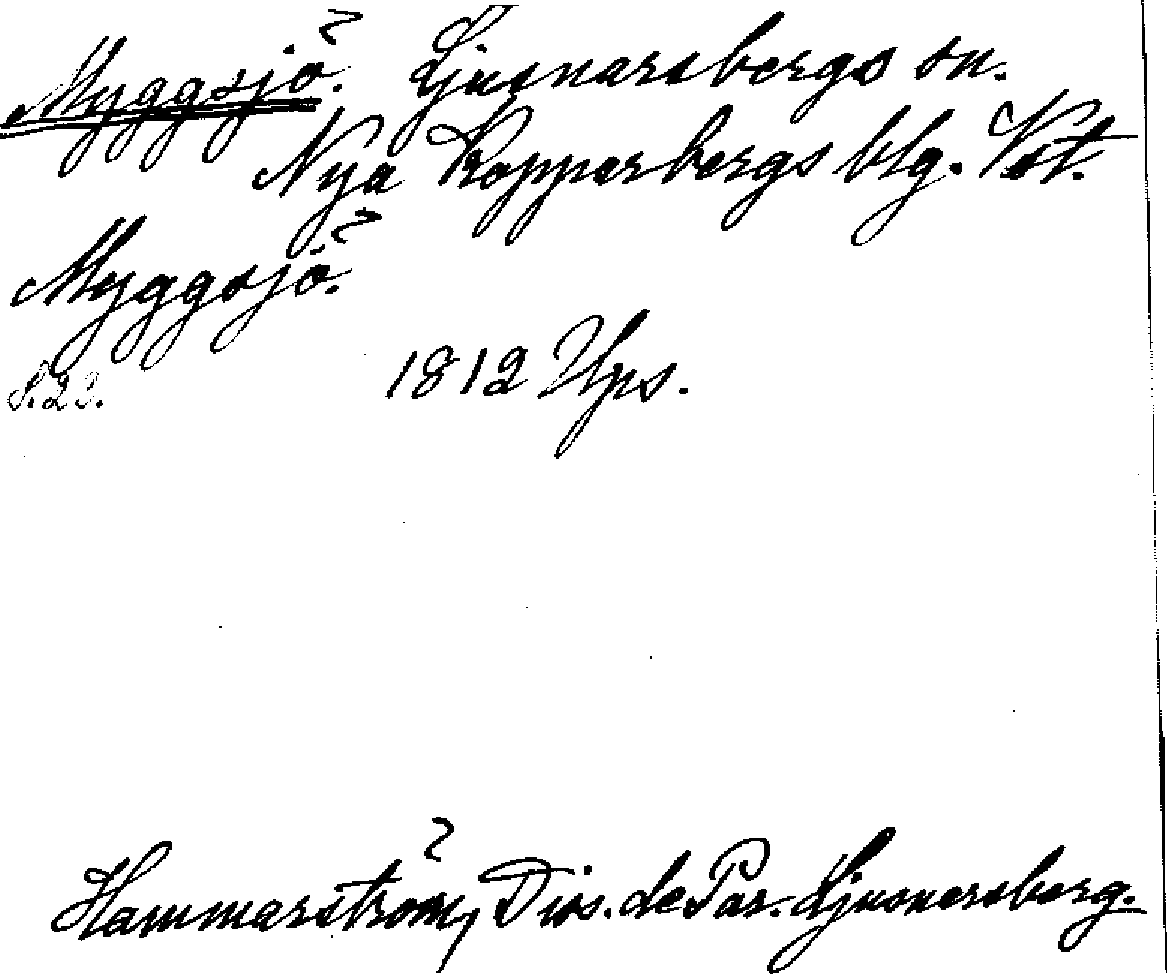 Myggsjö. Ljusnarsbergs sn.
Nya Kopparbergs blg. Vst.
Myggsjö.
S.23. 1812 Ups.
Hammarström, Diss. de Par. Ljusnersberg.